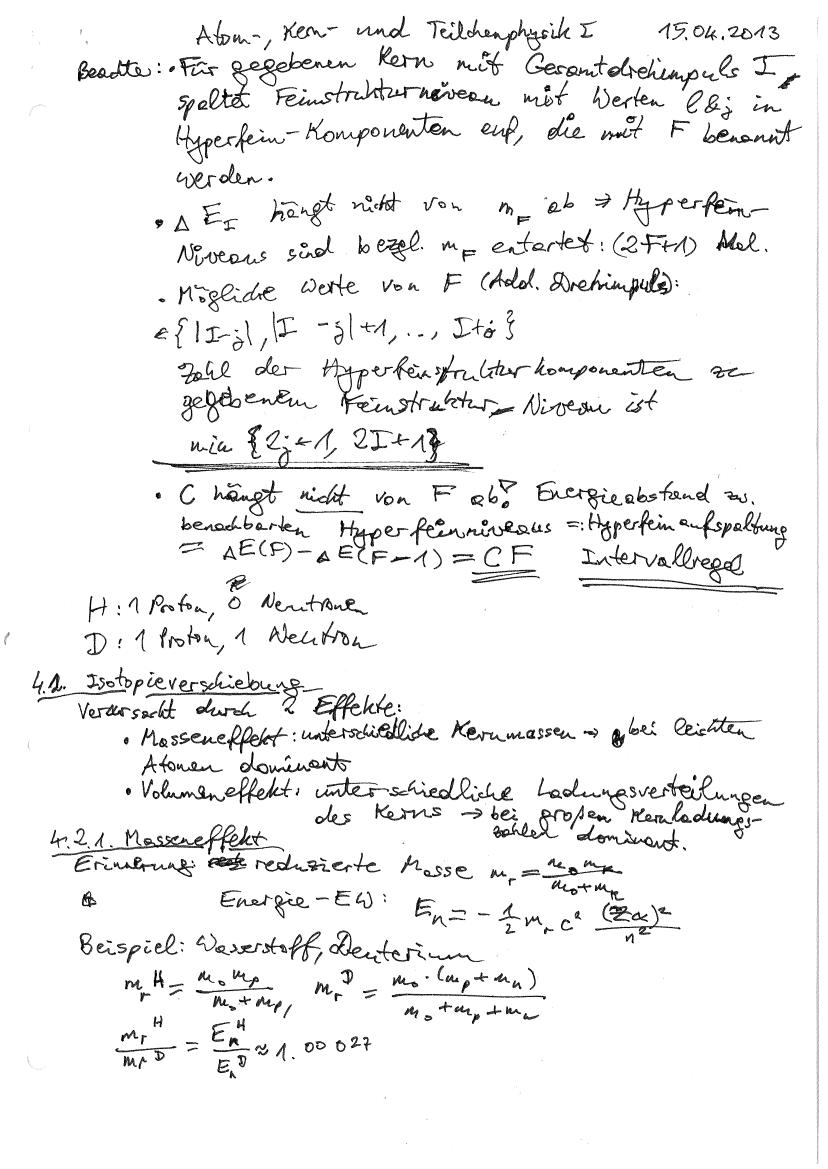 Atom-, Kern- und Teilchenphysik I 15.04.2013
Beachte: • Für gegebenen Kern mit Gesamtdrehimpuls I,
spaltet Feinstrukturniveau mit Werten l & j in
Hyperfein-Komponenten auf, die mit F benannt
werden.
• Δ E_I hängt nicht von m_F ab ⇒ Hyperfein-
Niveaus sind bezgl. m_F entartet: (2F+1) Mal.
• Mögliche Werte von F (Add. Drehimpuls):
∈ {|I-j|, |I-j|+1, .., I+j}
Zahl der Hyperfeinstrukturkomponenten zu
gegebenem Feinstruktur-Niveau ist
min {2j+1, 2I+1}
• C hängt nicht von F ab! Energieabstand zw.
benachbarten Hyperfeinniveaus =: Hyperfeinaufspaltung
= ΔE(F) - ΔE(F-1) = CF Intervallregel
H: 1 Proton, 0 Neutronen
D: 1 Proton, 1 Neutron
4.2. Isotopieverschiebung
Verursacht durch 2 Effekte:
• Masseneffekt: unterschiedliche Kernmassen → bei leichten
Atomen dominant
• Volumeneffekt: unterschiedliche Ladungsverteilungen
des Kerns → bei großen Kernladungs-
zahlen dominant.
4.2.1. Masseneffekt
Erinnerung: reduzierte Masse m_r = (m_0 m_k)/(m_0 + m_k)
Energie-EW: E_n = -1/2 m_r c² (Zα)²/n²
Beispiel: Wasserstoff, Deuterium
m_r^H = (m_0 m_p)/(m_0 + m_p), m_r^D = (m_0 · (m_p + m_n))/(m_0 + m_p + m_n)
m_r^H/m_r^D = E_n^H/E_n^D ≈ 1.00027